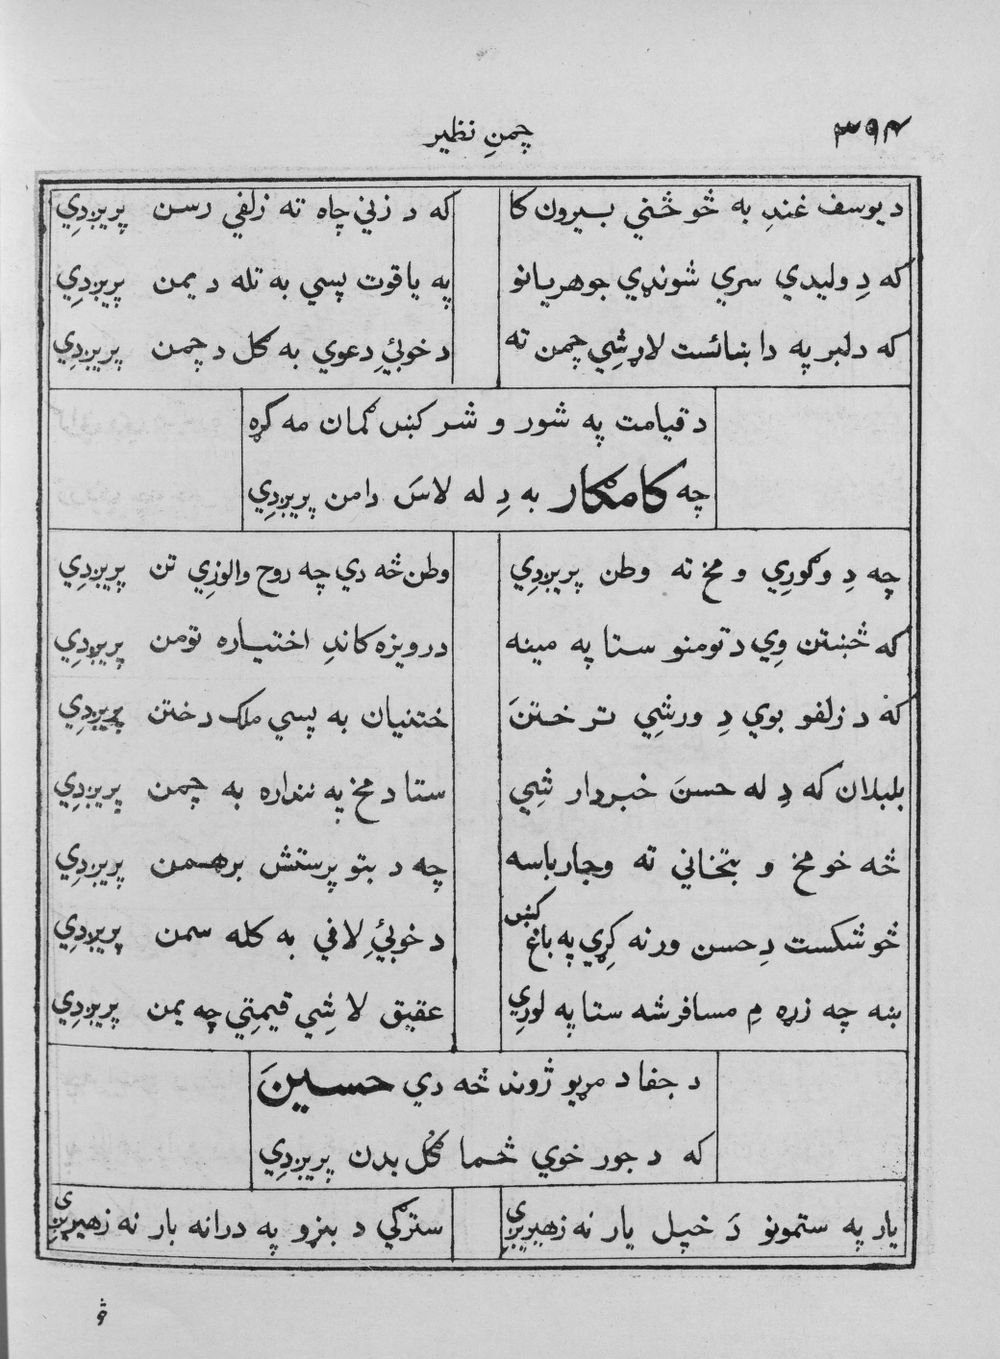 ۳۹۴
چمنِ نظیر
د یوسف غندِ به څو څني بیرون کا
که د زني چاه ته زلفي رسن پریږدِي
که دِ ولیدي سري شونډي جوهریانو
په یاقوت پسي به تله د یمن پریږدِي
که دلبر په دا ښائست لاړشِي چمن ته
د خوبئِ دعوي به ګل د چمن پریږدِي
د قیامت په شور و شر کښ ګمان مه کړه
چه کامګار به دِ له لاسَ دامن پریږدِي
چه دِ وګورِي و مخ ته وطن پریږدِي
وطن څه دي چه روح والوزِي تن پریږدِي
که څښتن وِي د تومنو ستا په مینه
درویزه کاندِ اختیاره تومن پریږدِي
که د زلفو بوي دِ ورشِي تر ختنَ
ختنیان به پسي ملک د ختن پریږدِي
بلبلان که دِ له حسنَ خبردار شِي
ستا د مخ په ننداره به چمن پریږدِي
څه خو مخ و بتخاني ته وجارباسه
چه د بتو پرستش برهمن پریږدِي
څو شکست دِ حسن ورنه کړِي په باغ کښ
د خوبئِ لافي به کله سمن پریږدِي
ښه چه زړه مِ مسافر شه ستا په لورِي
عقیق لا شِي قیمتِي چه یمن پریږدِي
د جفا د مړیو ژوند څه دي حسینَ
که د جور خوي څما ګل بدن پریږدِي
یار په ستمونو دَ خپل یار نه زهیریږِي
سترګي د بڼړو په درانه بار نه زهیریږِي